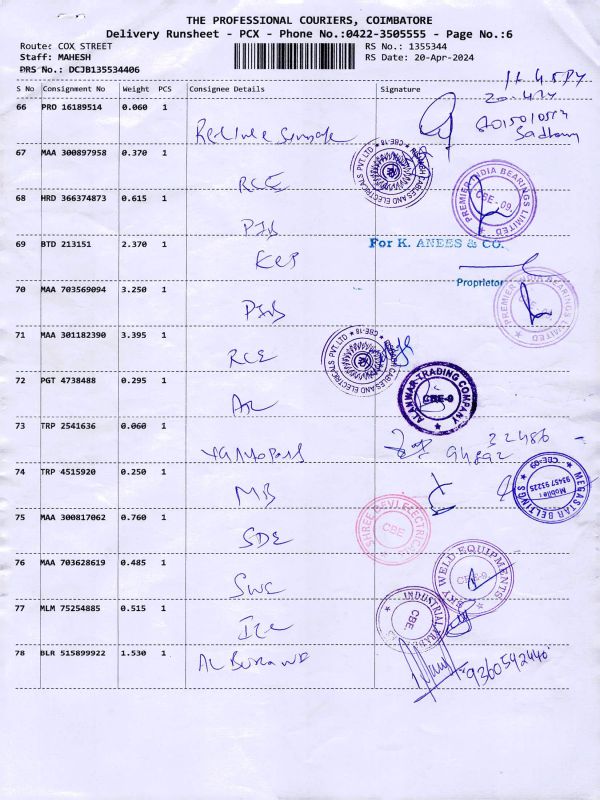 THE PROFESSIONAL COURIERS, COIMBATORE
Delivery Runsheet - PCX - Phone No.:0422-3505555 - Page No.:6
Route: COX STREET RS No.: 1355344
Staff: MAHESH RS Date: 20-Apr-2024
DRS No.: DCJB135534406
S No Consignment No Weight PCS Consignee Details Signature
66 PRO 16189514 0.060 1
67 MAA 300897958 0.370 1
RCE
68 HRD 366374873 0.615 1
PREMIER INDIA BEARINGS LIMITED
CBE-09.
69 BTD 213151 2.370 1
For K. ANEES & CO.
Proprietor
70 MAA 703569094 3.250 1
PREMIER INDIA BEARINGS LIMITED
71 MAA 301182390 3.395 1
RCE
CABLES AND ELECTRICALS PVT LTD CBE-18
72 PGT 4738488 0.295 1
ALANWAR TRADING COMPANY
CBE-9
73 TRP 2541636 0.060 1
32486
94892
74 TRP 4515920 0.250 1
MB
MEGASTAR BELTINGS CBE-09
Mobile:
93457 93225
75 MAA 300817062 0.760 1
SDE
SHREE DEVI ELECTRICAL
CBE
76 MAA 703628619 0.485 1
SWE
SKY WELD EQUIPMENTS
77 MLM 75254885 0.515 1
INDUSTRIAL
CBE
78 BLR 515899922 1.530 1
9360542440